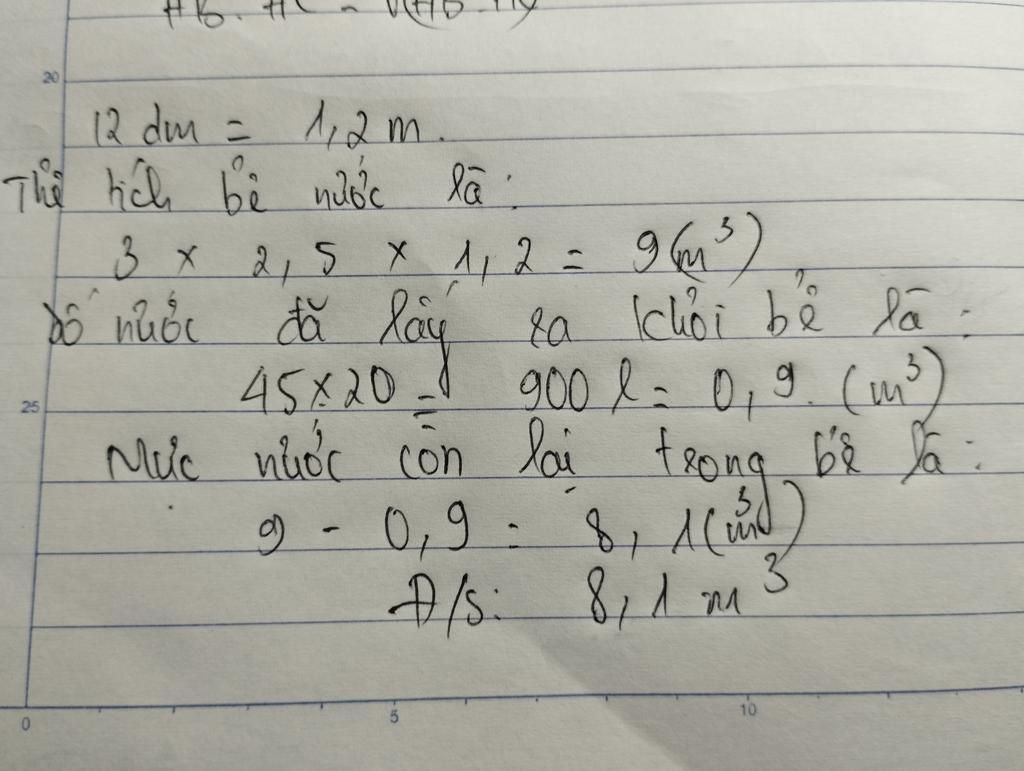 20
12 dm = 1,2 m.
Thể tích bể nước là:
3 x 2,5 x 1,2 = 9(m³)
Số nước đã lấy ra khỏi bể là:
25
45 x 20 = 900 l = 0,9. (m³)
Mức nước còn lại trong bể là:
9 - 0,9 = 8,1(m³)
Đ/S: 8,1 m³
0 5 10